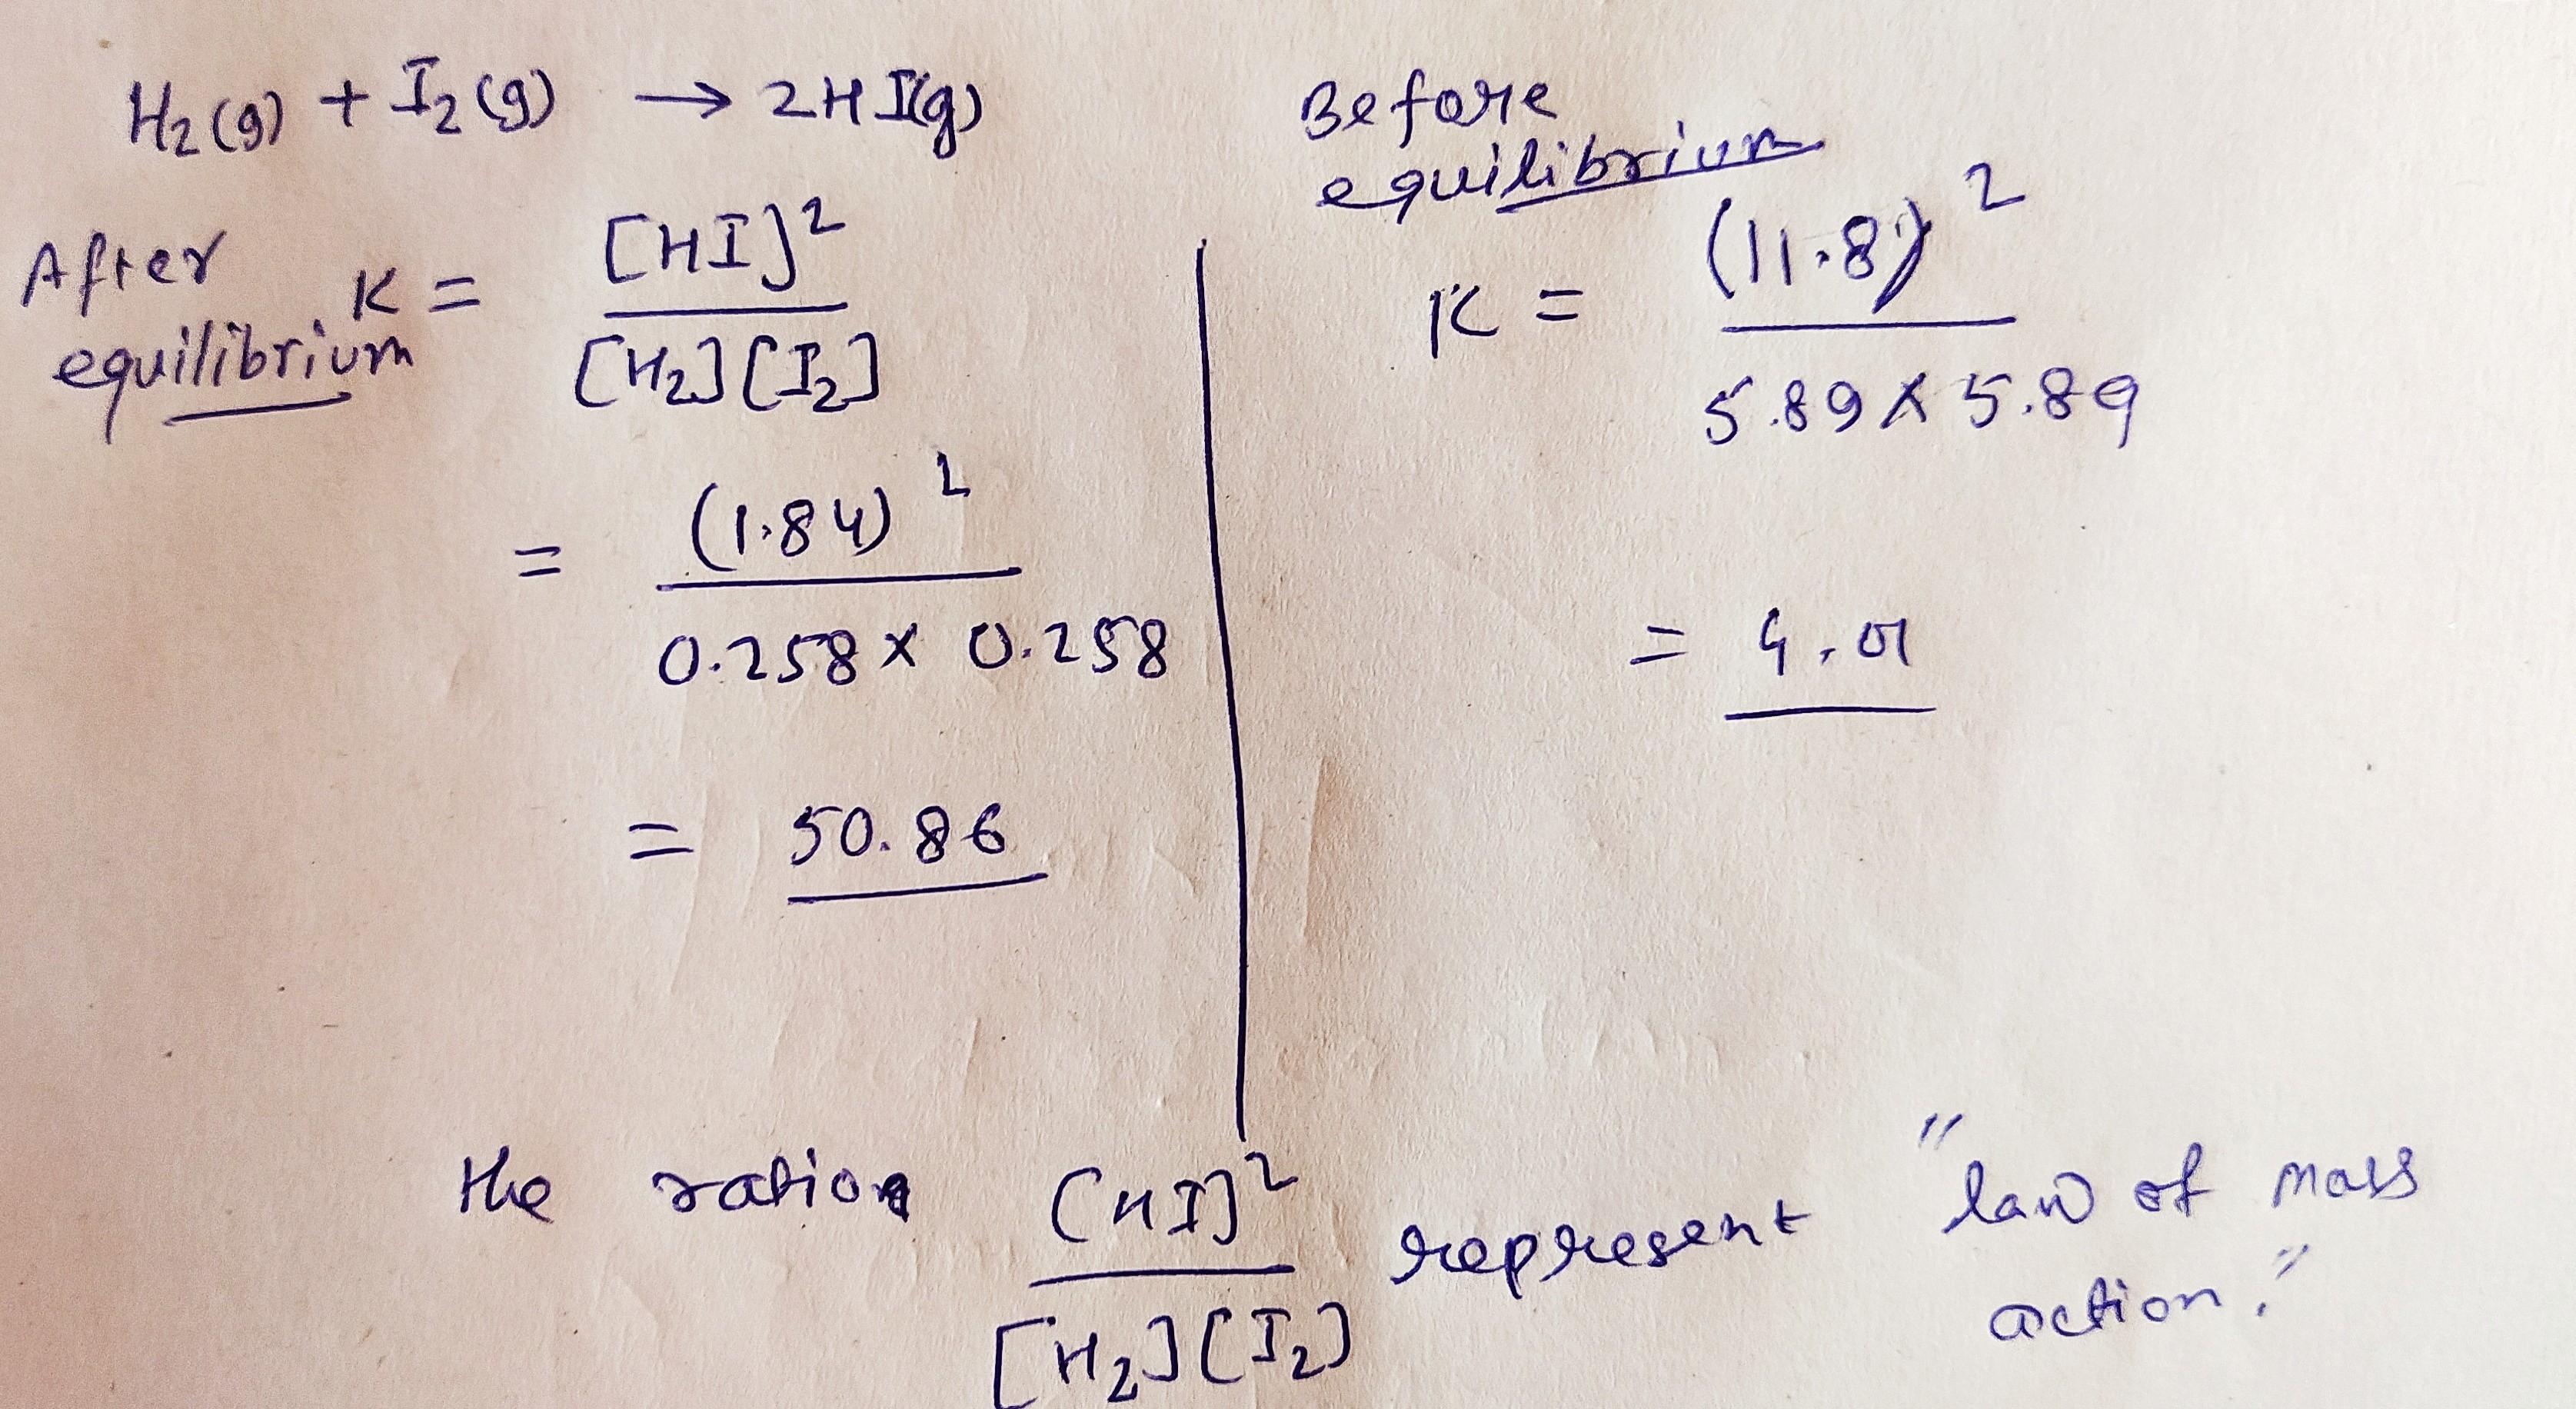 H₂(g) + I₂(g) → 2HI(g)
After equilibrium K = [HI]² / [H₂][I₂]
= (1.84)² / 0.258 × 0.258
= 50.86
Before
equilibrium
K = (11.8)² / 5.89 × 5.89
= 4.01
the ratio [HI]² / [H₂][I₂] represent "law of mass
action."